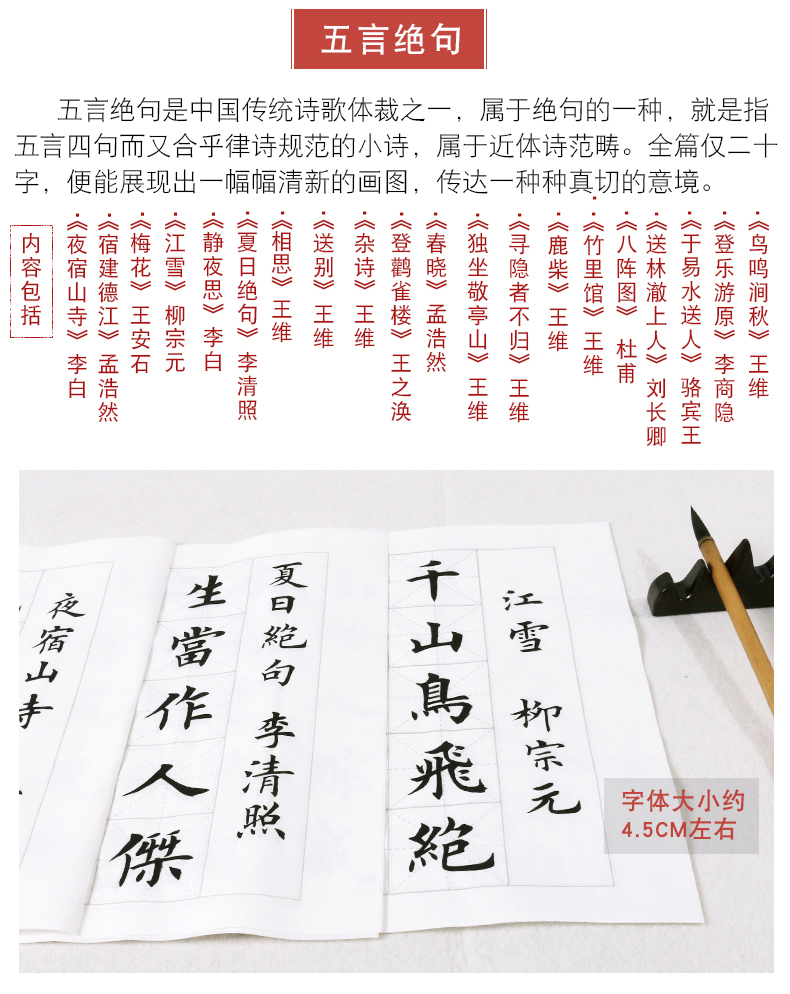 五言绝句
五言绝句是中国传统诗歌体裁之一，属于绝句的一种，就是指
五言四句而又合乎律诗规范的小诗，属于近体诗范畴。全篇仅二十
字，便能展现出一幅幅清新的画图，传达一种种真切的意境。
·《鸟鸣涧秋》王维
·《登乐游原》李商隐
·《于易水送人》骆宾王
·《送林澈上人》刘长卿
·《八阵图》杜甫
·《竹里馆》王维
·《鹿柴》王维
·《寻隐者不归》王维
·《独坐敬亭山》王维
·《春晓》孟浩然
·《登鹳雀楼》王之涣
·《杂诗》王维
·《送别》王维
·《相思》王维
·《夏日绝句》李清照
·《静夜思》李白
·《江雪》柳宗元
·《梅花》王安石
·《宿建德江》孟浩然
·《夜宿山寺》李白
内容包括
江雪 柳宗元
千山鳥飛絕
夏日絕句 李清照
生當作人傑
夜宿山寺
字体大小约
4.5CM左右